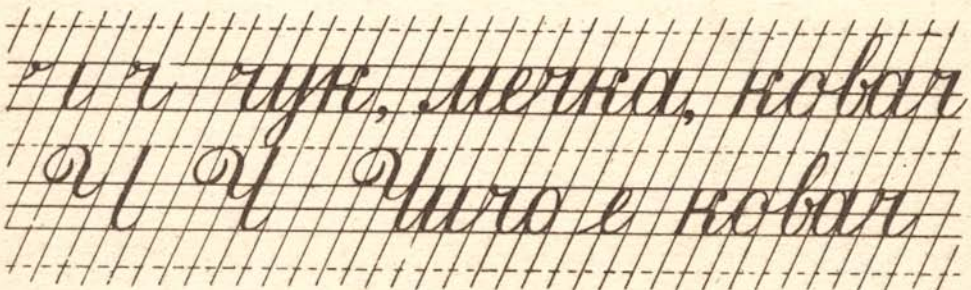 ч ч чук, мечка, ковач
Ч Ч Чичо е ковач